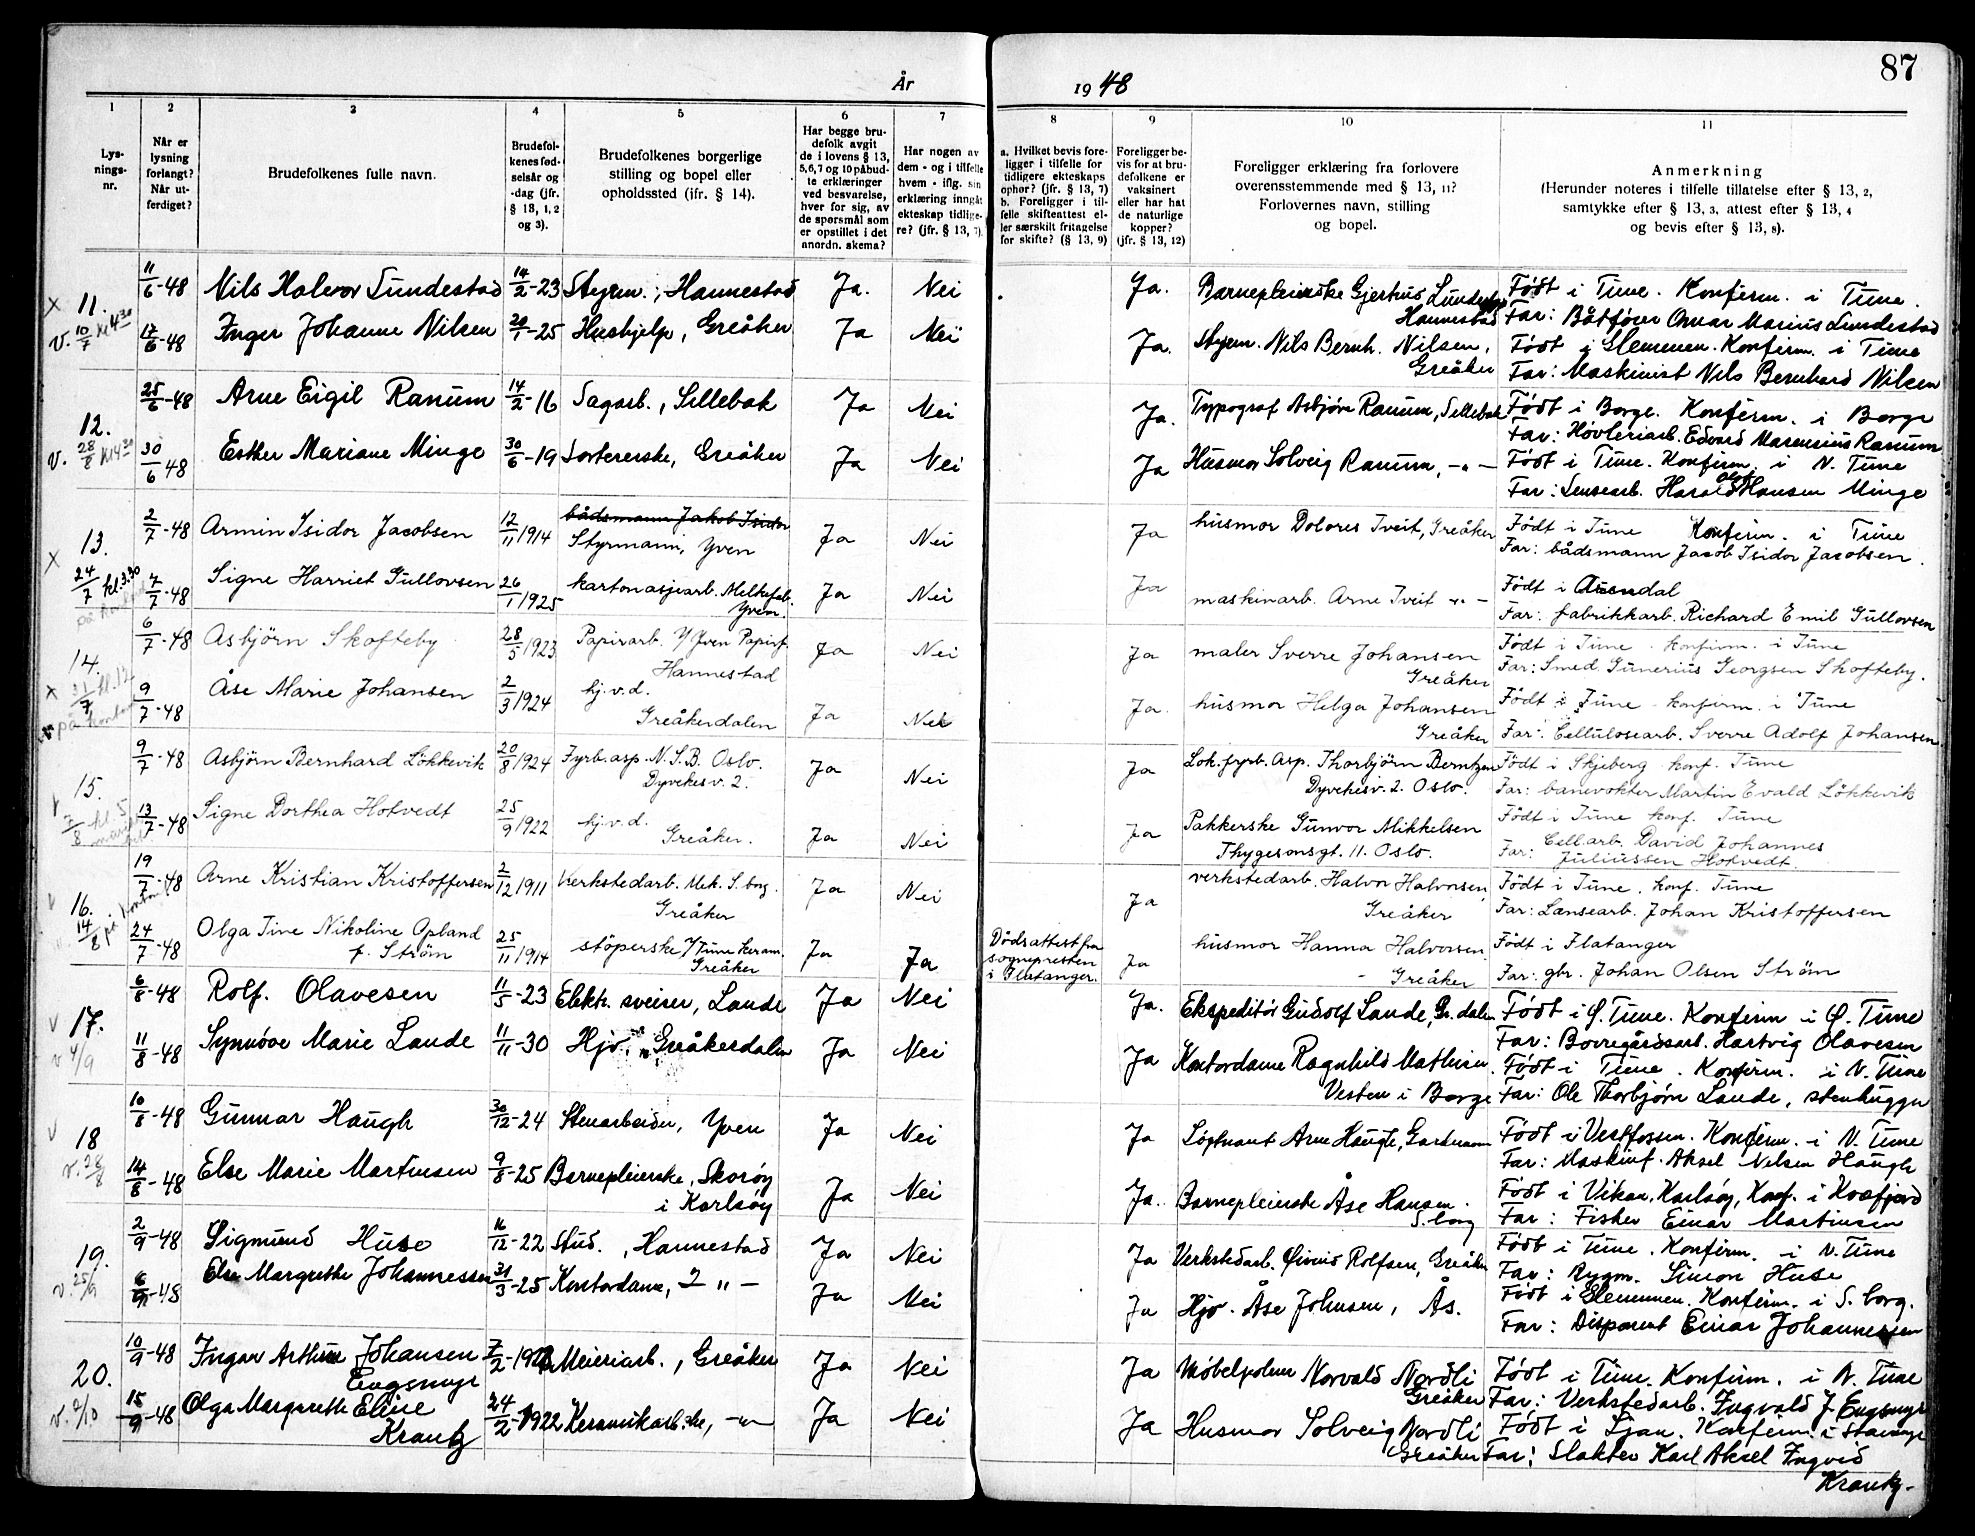 87
År 1948
1 2 3 4 5 6 7 8 9 10 11
Lysningsnr.
Når er lysning forlangt? Når utferdiget?
Brudefolkenes fulle navn.
Brudefolkenes fødselsår og -dag (jfr. § 13, 1, 2 og 3).
Brudefolkenes borgerlige stilling og bopel eller opholdssted (ifr. § 14).
Har begge brudefolk avgit de i lovens § 13, 5,6,7 og 10 påbudte erklæringer ved besvarelse, hver for sig, av de spørsmål som er opstillet i det anordn. skema?
Har nogen av dem - og i tilfelle hvem - iflg. sin erklæring inngåt ekteskap tidligere? (jfr. § 13, 7).
a. Hvilket bevis foreligger i tilfelle for tidligere ekteskaps ophør? (jfr. § 13, 7) b. Foreligger i tilfelle skifteattest eller særskilt fritagelse for skifte? (§ 13, 9)
Foreligger bevis for at brudefolkene er vaksinert eller har hat de naturlige kopper? (jfr. § 13, 12)
Foreligger erklæring fra forlovere overensstemmende med § 13, 11? Forlovernes navn, stilling og bopel.
Anmerkning (Herunder noteres i tilfelle tillatelse efter § 13, 2, samtykke efter § 13, 3, attest efter § 13, 4 og bevis efter § 13, 8).
x 11. 11/6-48 Nils Halvor Lundestad 14/2-23 Styrm., Hannestad Ja. Nei Ja. Barnepleierske Gjerhus Hannestad Født i Tune. Konfirm. i Tune. Far: Båtfører Omar Marius Lundestad
v. 10/7 kl 4 30 17/6-48 Inger Johanne Nilsen 20/1-25 Hushjelp, Greåker Ja Nei Ja. Styrm. Nils Bernh. Nilsen, Greåker Født i Glemmen. Konfirm. i Tune Far: Maskinist Nils Bernhard Nilsen
12. 25/6-48 Arne Eigil Ranum 14/2-16 Sagarb., Sellebak Ja Nei Ja. Typograf Asbjørn Ranum, Sellebak Født i Borge. Konfirm. i Borge Far: Høvleriarb. Edvard Marensius Ranum
v. 28/8 kl 4 30 30/6 48 Esther Mariane Minge 30/6-19 Sortererske, Greåker Ja Nei Ja Husmor Solveig Ranum, -"- Født i Tune. Konfirm. i N. Tune Far: Lensearb. Harald Olaf Hansen Minge
13. 2/7-48 Armin Isidor Jacobsen 12/11 1914 bådsmann Jakob Isidor Styrmann, Yven Ja Nei Ja husmor Dolores Tveit, Greåker Født i Tune Konfirm. i Tune Far: bådsmann Jacob Isidor Jacobsen.
x 24/7 kl. 3.30 på kontoret 7/7-48 Signe Harriet Gullovsen 26/1 1925 kartonasjearb. Melkefab. Yven. Ja Nei Ja maskinarb. Arne Tveit -"- Født i Arendal Far: fabrikkarb. Richard Emil Gullovsen
14. 6/7-48 Asbjörn Skofteby 28/5 1923 Papirarb. v/ Yven Papirf. Hannestad Ja Nei Ja maler Sverre Johansen Greåker Født i Tune konfirm. i Tune Far: Smed. Gunerius Georgsen Skofteby.
x 31/7 kl. 12 på kontoret 9/7-48 Åse Marie Johansen 2/3 1924 hj.v.d. Greåkerdalen Ja Nei Ja. husmor Helga Johansen Greåker Født i Tune konfirm. i Tune Far: Cellulosearb. Sverre Adolf Johansen.
15. 9/7-48 Asbjörn Bernhard Lökkevik 20/8 1924 Fyrb. asp. N.S.B. Oslo. Dyvekesv. 2. Ja Nei Ja Lok. fyrb. Asp. Thorbjörn Berntzen Dyvekesv. 2. Oslo. Født i Skjeberg konf. Tune Far: banevokter Martin Evald Lökkevik
v 7/8 kl. 5 13/7-48 Signe Dorthea Hotvedt 25/9 1922 hj.v.d. Greåker. Ja Nei Ja Pakkerske Gunvor Mikkelsen Thygesonsgt. 11. Oslo. Født i Tune konf. Tune Far: Cell.arb. David Johannes Juliussen Hotvedt.
16. 19/7-48 Arne Kristian Kristoffersen 2/12 1911 Verkstedarb. Mek. S.borg. Greåker Ja Nei Ja verkstedarb. Halvor Halvorsen, Greåker Født i Tune, konf. Tune Far: Lensearb. Johan Kristoffersen
v 14/8 på kontoret 24/7-48 Olga Tine Nikoline Opland f. Ström 25/11 1914 stöperske v/ Tune keram. Greåker Ja Ja Dödsattest fra sognepresten i Flatanger. Ja husmor Hanna Halvorsen - Greåker Født i Flatanger Far: gbr. Johan Olsen Ström
v 17. 6/8-48 Rolf. Olavesen 11/5-23 Elektr. sveiser, Lande Ja Nei Ja. Ekspeditör Gudolf Lande, Gr. dalen Født i Ø. Tune. Konfirm i Ø. Tune Far: Borregårdsarb. Hartvig Olavesen
v 4/9 11/8-48 Synnöve Marie Lande 11/11-30 Hjv., Greåkerdalen Ja Nei Ja Kontordame Ragnhild Mathisen. Vesten i Borge Født i Tune. Konfirm. i N. Tune Far: Ole Thorbjörn Lande, stenhugger
v 18 10/8-48 Gunnar Haugh 30/12-24 Stenarbeider, Yven Ja Nei Ja Löytnant Arne Haugh, Født i Vestfossen. Konfirm. i N. Tune Far: Maskinf. Aksel Nilsen Haugh
v. 28/8 14/8-48 Else Marie Martinsen 9/8-25 Barnepleierske, Skoröy i Karlsöy Ja Nei Ja. Barnepleierske Åse Hansen. S.borg Født i Vikan, Karlsöy, Konf. i Kvæfjord Far: Fisker Einar Martinsen
19. 2/9-48 Sigmund Huse 16/12-22 Stud., Hannestad Ja Nei Ja Verkstedarb. Öivind Rolfsen, Greåker Født i Tune. Konfirm. i N. Tune Far: Rygm. Simon Huse
v. 25/9 6/9-48 Else Margrethe Johannessen 31/3-25 Kontordame, -"- Ja Nei Ja Hjv. Åse Johnsen, Ås. Født i Glemmen. Konfirm. i S.borg. Far: Disponent Einar Johannessen
20. 10/9-48 Ingar Arthur Johansen Engsmyr 7/2-192 Meieriarb., Greåker Ja Nei Ja Möbelpolerer Norvald Nordli Greåker Født i Tune. Konfirm. i N. Tune Far: Verkstedarb. Ingvald J. Engsmyr
v. 2/10 15/9-48 Olga Margarethe Eline Krantz 24/2-1922 Keramikarb.ske, -"- Ja Nei Ja Husmor Solveig Nordli Greåker Født i Ljan. Konfirm. i Far: Slakter Karl Aksel Ingvid Krantz.